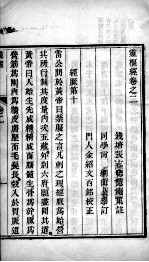 靈樞經卷之二
錢塘張志聰隱菴集註
同學 參訂
門人金 文百銘校正
經脈第十
雷公問於黃帝曰禁服之言凡刺之理經脈爲始營
其所行制其度量內次五藏外別六府願盡聞其道
黃帝曰人始生先成精精成而腦髓生骨爲幹脈爲
營筋爲剛肉爲牆皮膚堅而毛髮長穀入於胃脈道